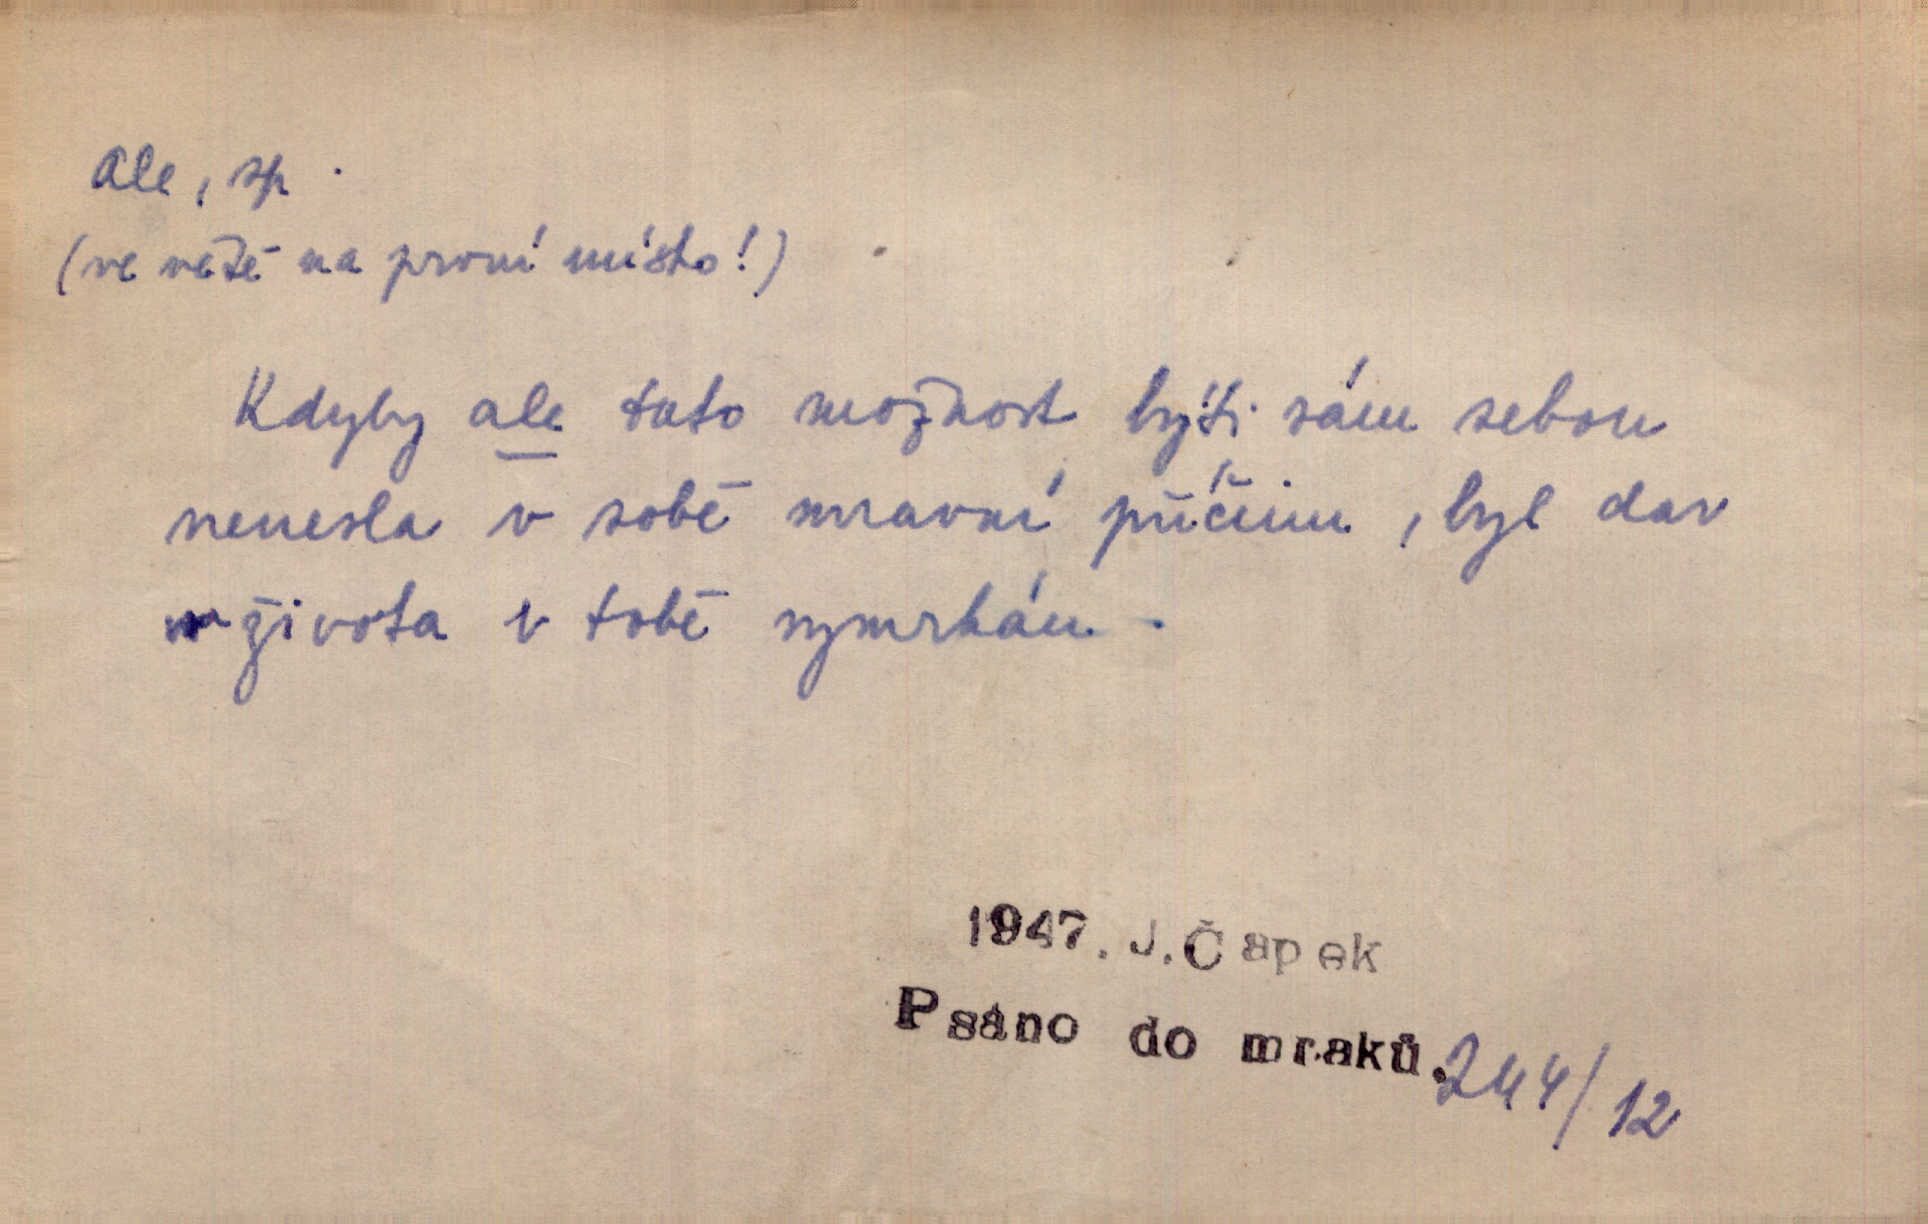 ale, sp.
(ve větě na první místo!)
Kdyby ale tato možnost býti sám sebou
nenesla v sobě mravní příčinu, byl dar
života v tobě vymrhán.
1947. J. Čapek
Psáno do mraků. 244/12